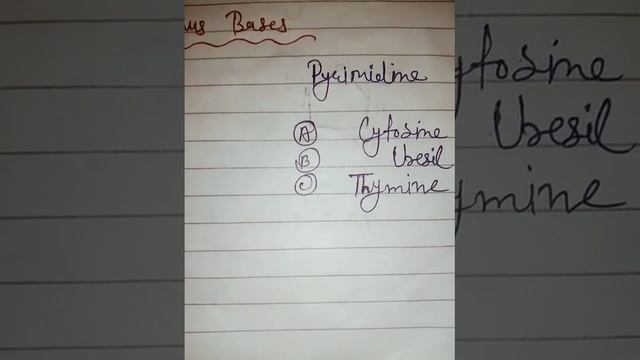 us Bases
Pyrimidine
A Cytosine
B Uresil
C Thymine
ytosine
Uresil
ymine